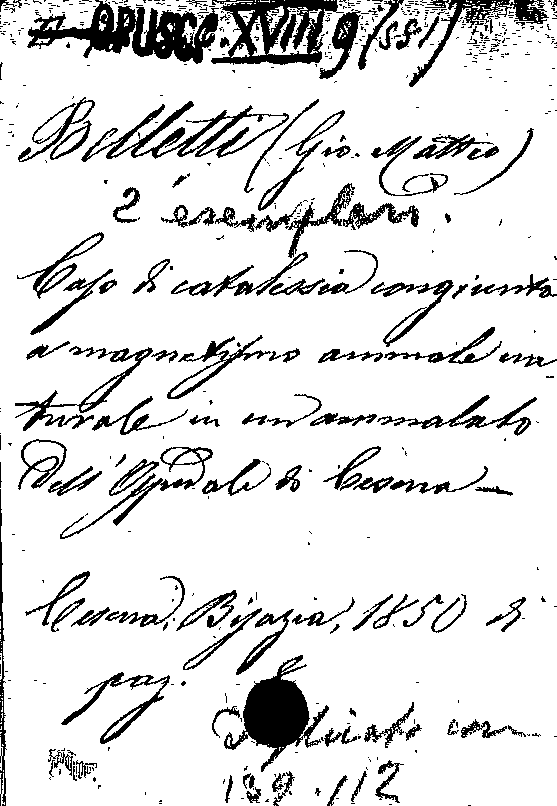 OPUSC. XVIII 9 (551)
Belletti (Gio. Matteo)
2 esemplari.
Caso di catalessia congiunta
a magnetismo animale na
turale in un ammalato
dell' Ospedale di Cesena —
Cesena, Bisazia, 1850 di
pag. 8
con
139.112